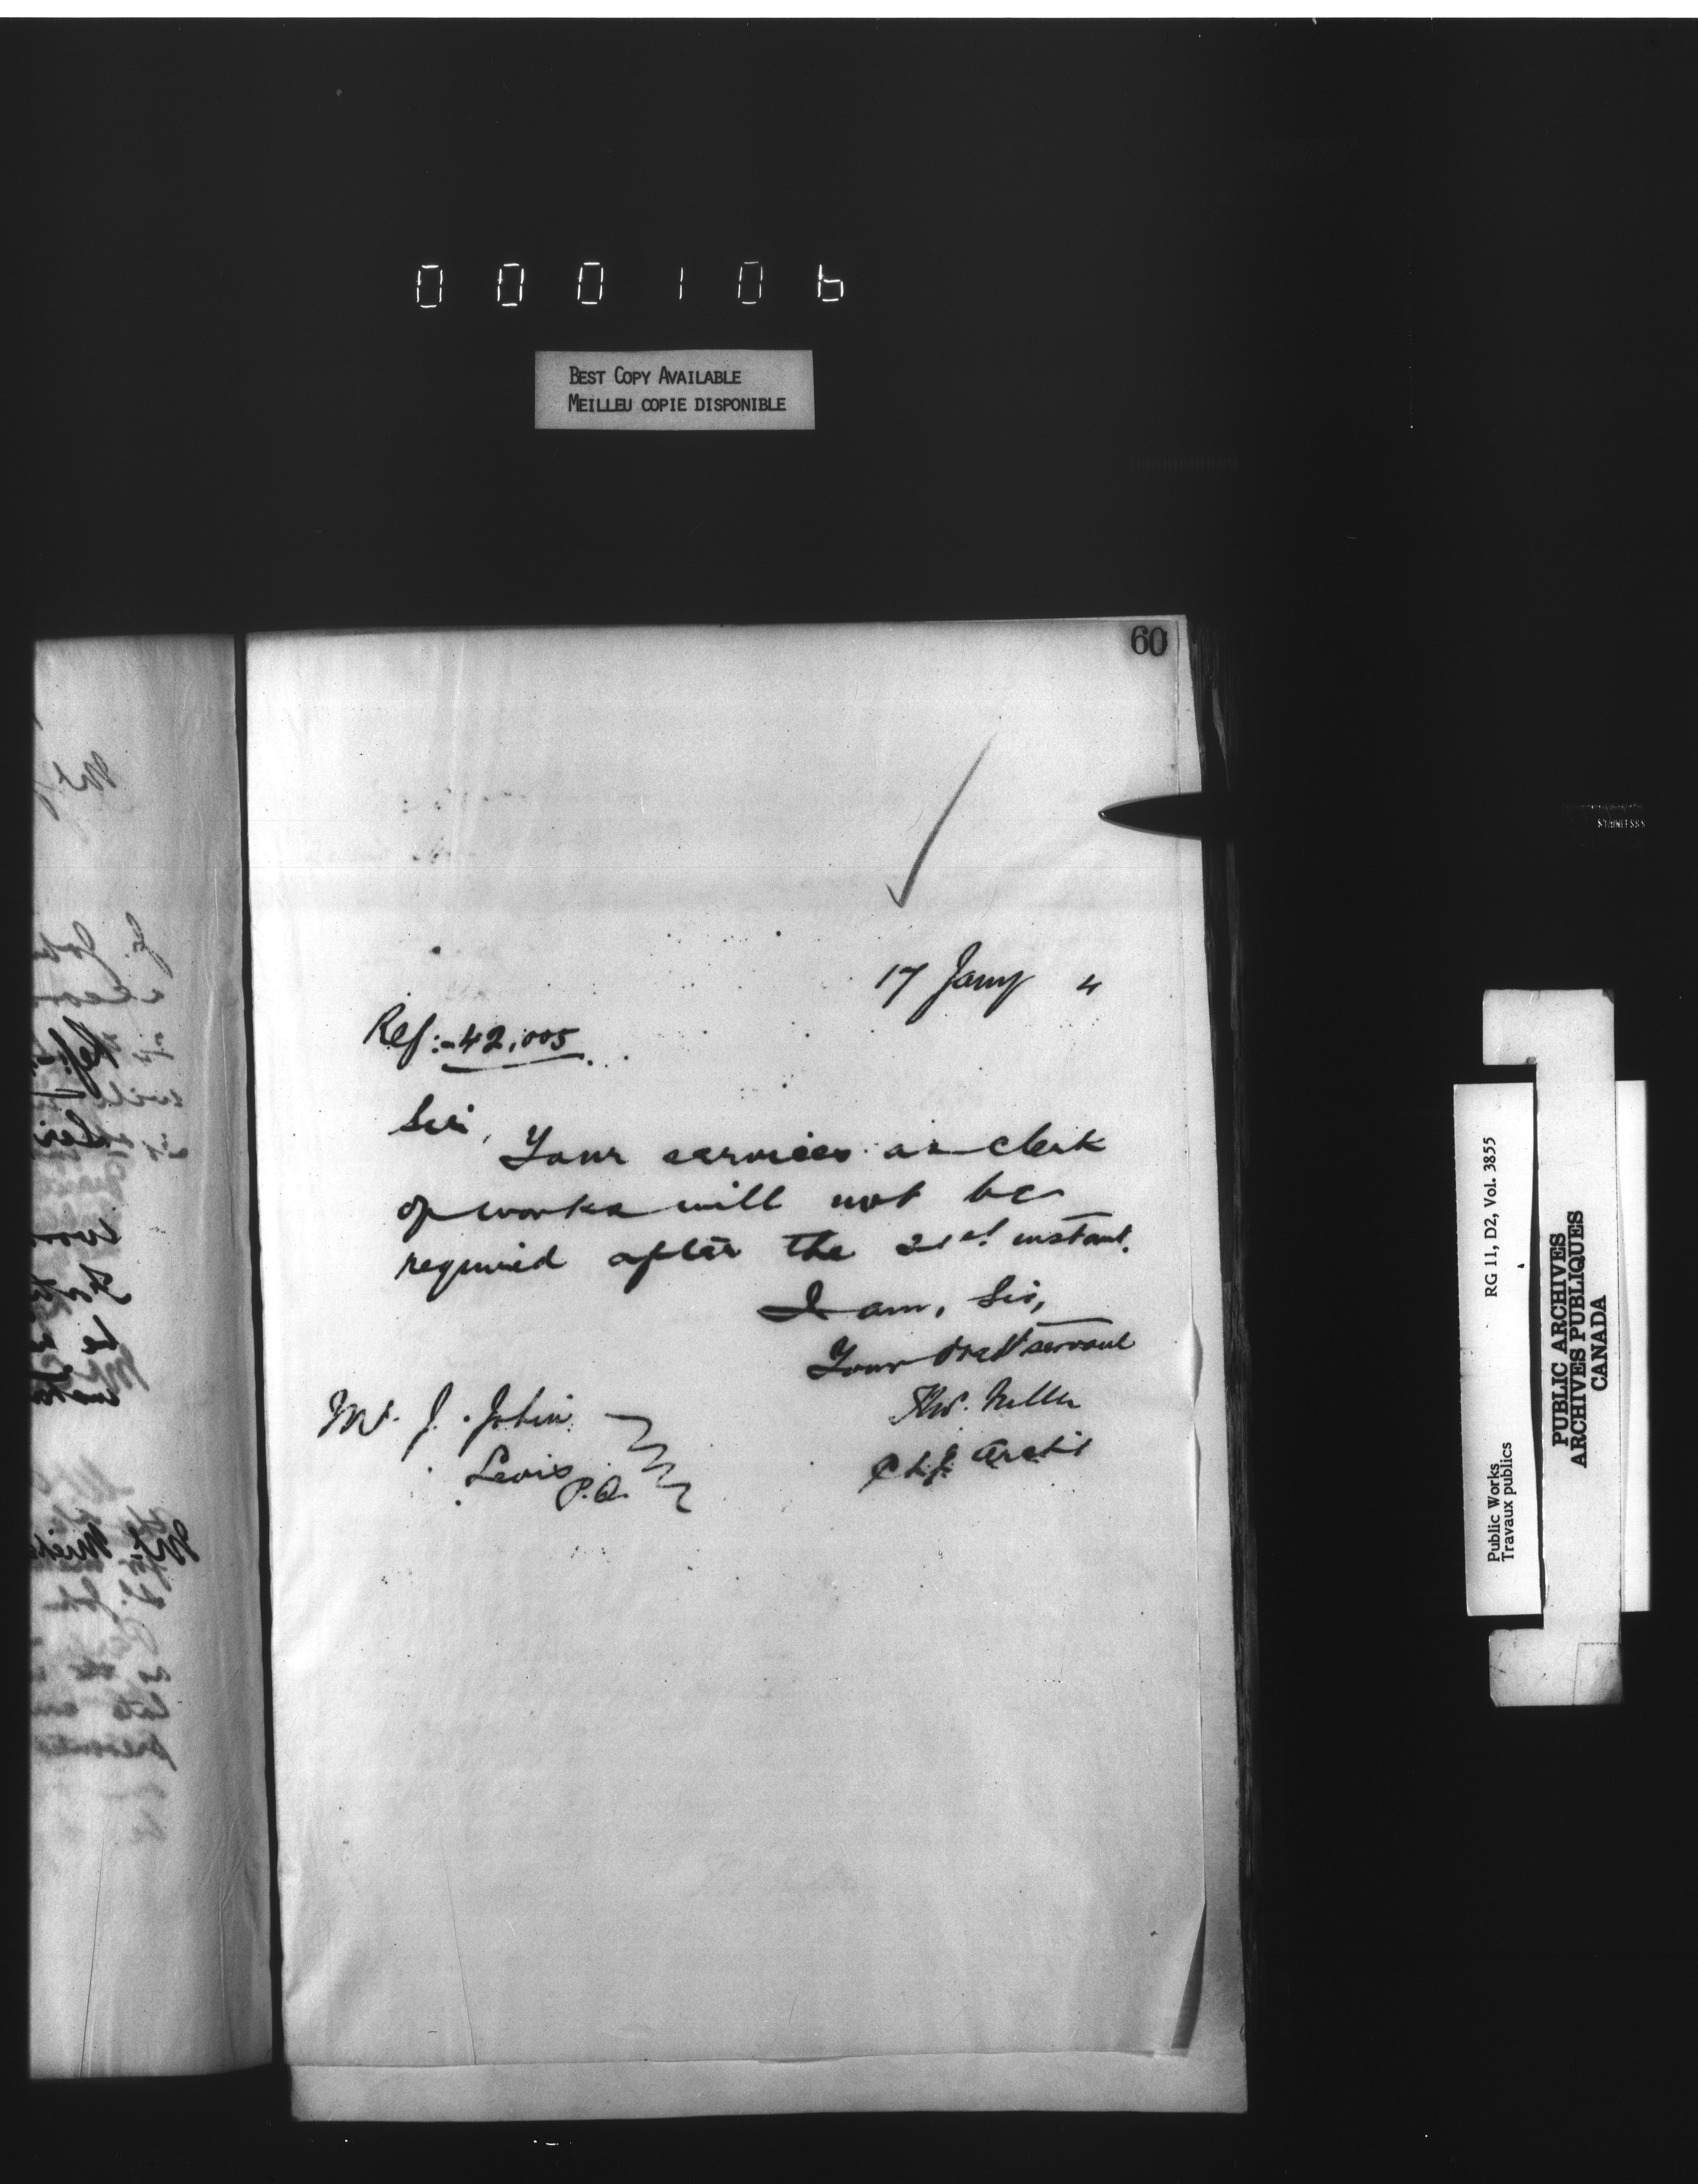 000106
BEST COPY AVAILABLE
MEILLEU COPIE DISPONIBLE
60
17 Jany 4
Ref:- 42,005
Sir,
Your services as clerk
of works will not be
required after the 21st instant.
I am, Sir,
Your obedt servant
Mr. J. Jobin
Levis
P.Q.
Chf Archt
STAINLESS
RG 11, D2, Vol. 3855
Public Works
Travaux publics
PUBLIC ARCHIVES
ARCHIVES PUBLIQUES
CANADA